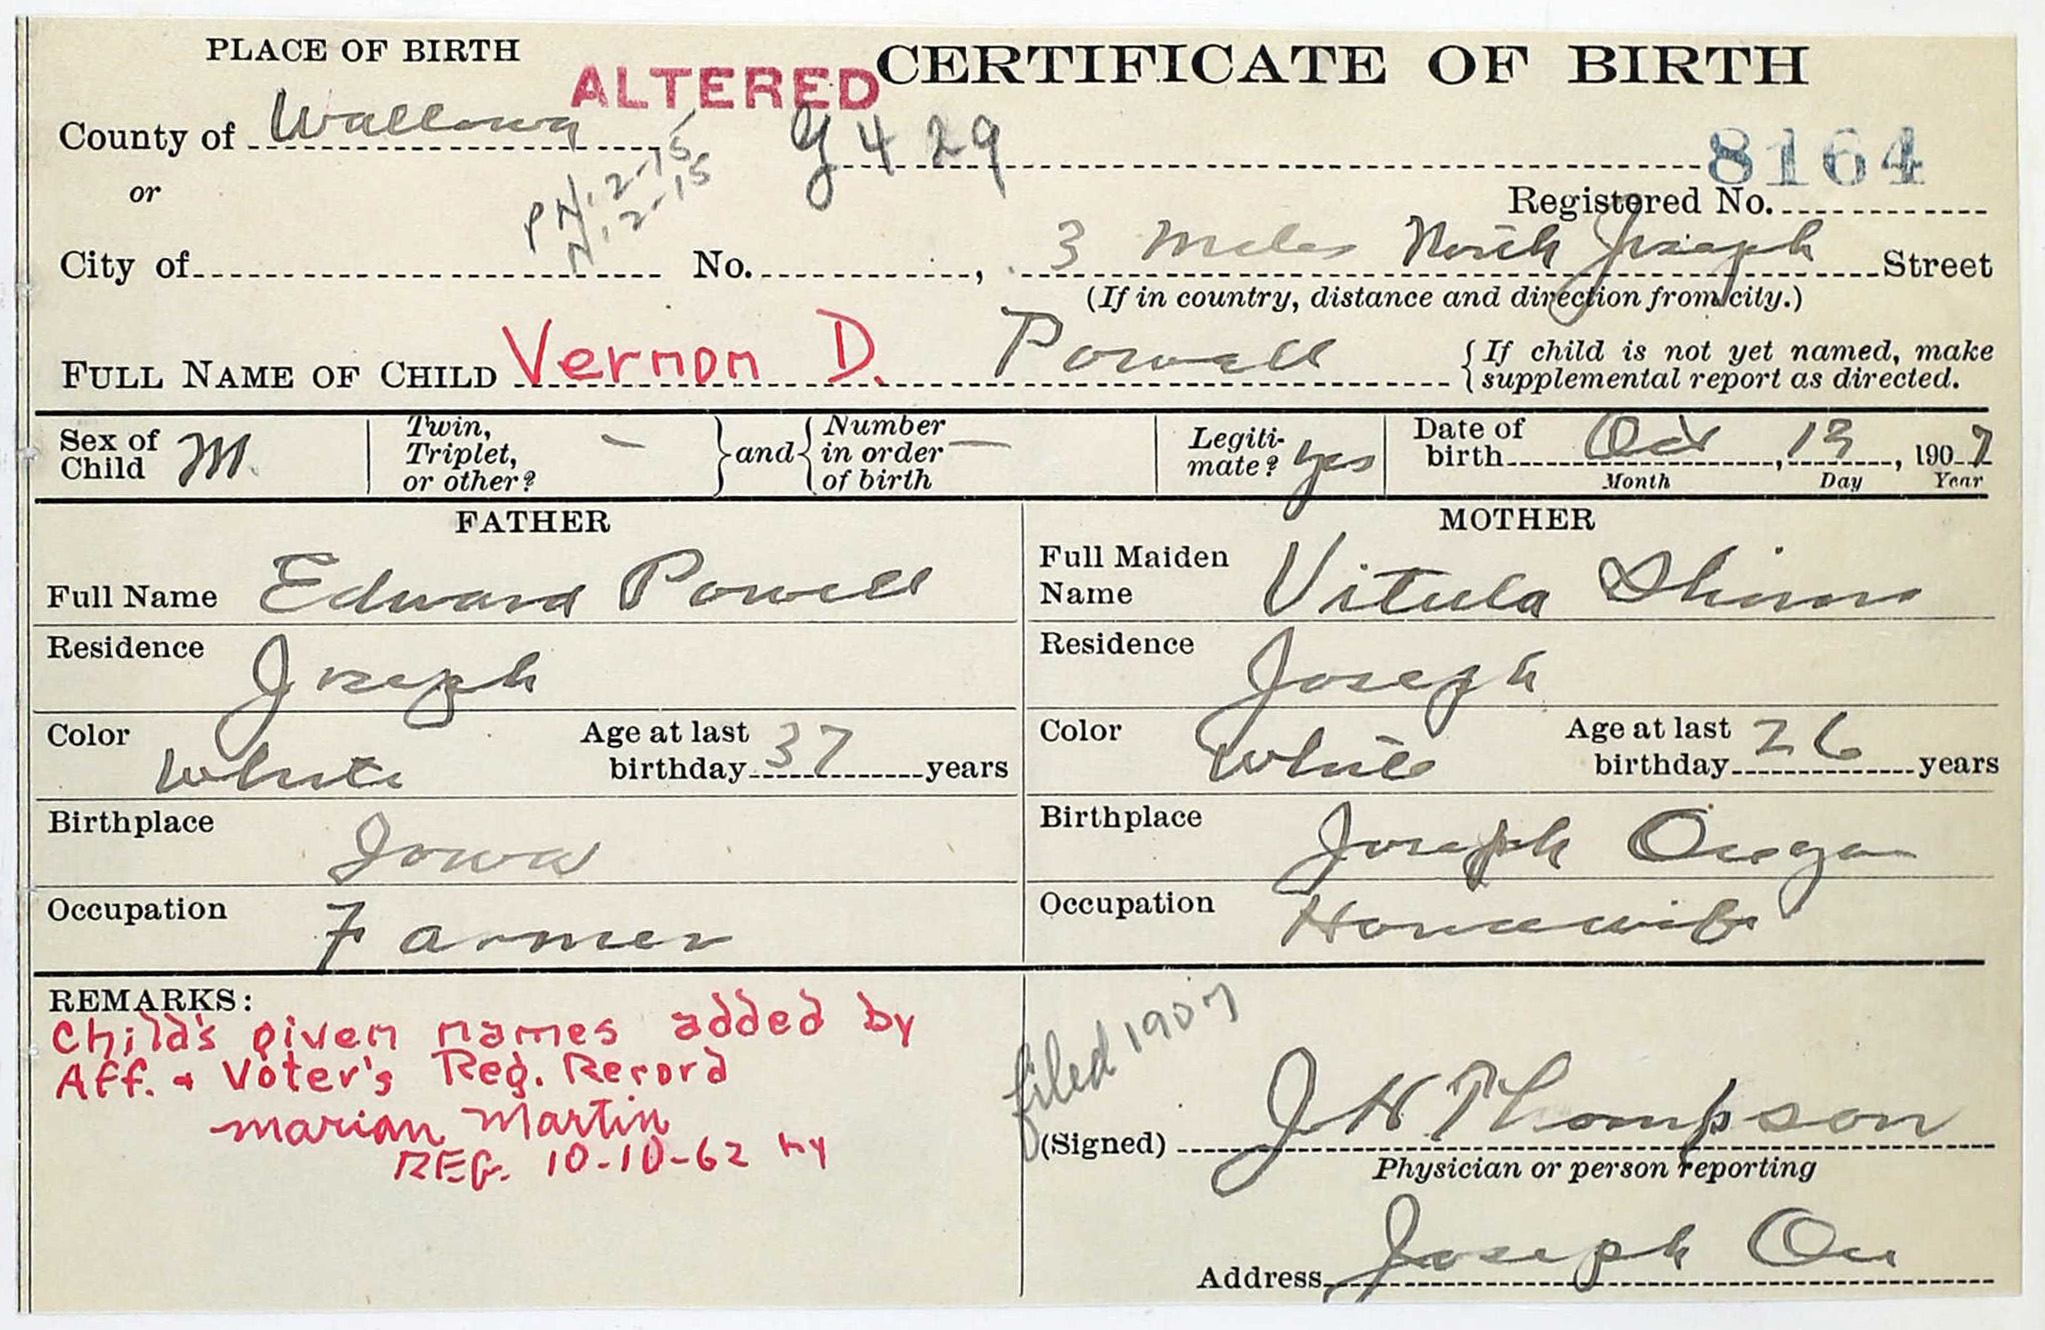 PLACE OF BIRTH
ALTERED
CERTIFICATE OF BIRTH
County of Wallowa
G 429
8164
or
PN. 2-15
N. 2-15
Registered No.
City of No. , 3 Miles North Joseph Street
(If in country, distance and direction from city.)
FULL NAME OF CHILD Vernon D. Powell {If child is not yet named, make
supplemental report as directed.
Sex of Child M. Twin, Triplet, or other? — } and { Number in order of birth — Legiti- mate? yes Date of birth Oct, 13, 1907
Month Day Year
FATHER
MOTHER
Full Name Edward Powell
Full Maiden Name Vitula
Residence Joseph
Residence Joseph
Color White Age at last birthday 37 years
Color White Age at last birthday 26 years
Birthplace Iowa
Birthplace Joseph Oregon
Occupation Farmer
Occupation Housewife
REMARKS:
Child's given names added by
Aff. & Voter's Reg. Record
Marian Martin
REG. 10-10-62
filed 1907
(Signed) J H Thompson
Physician or person reporting
Address Joseph Ore